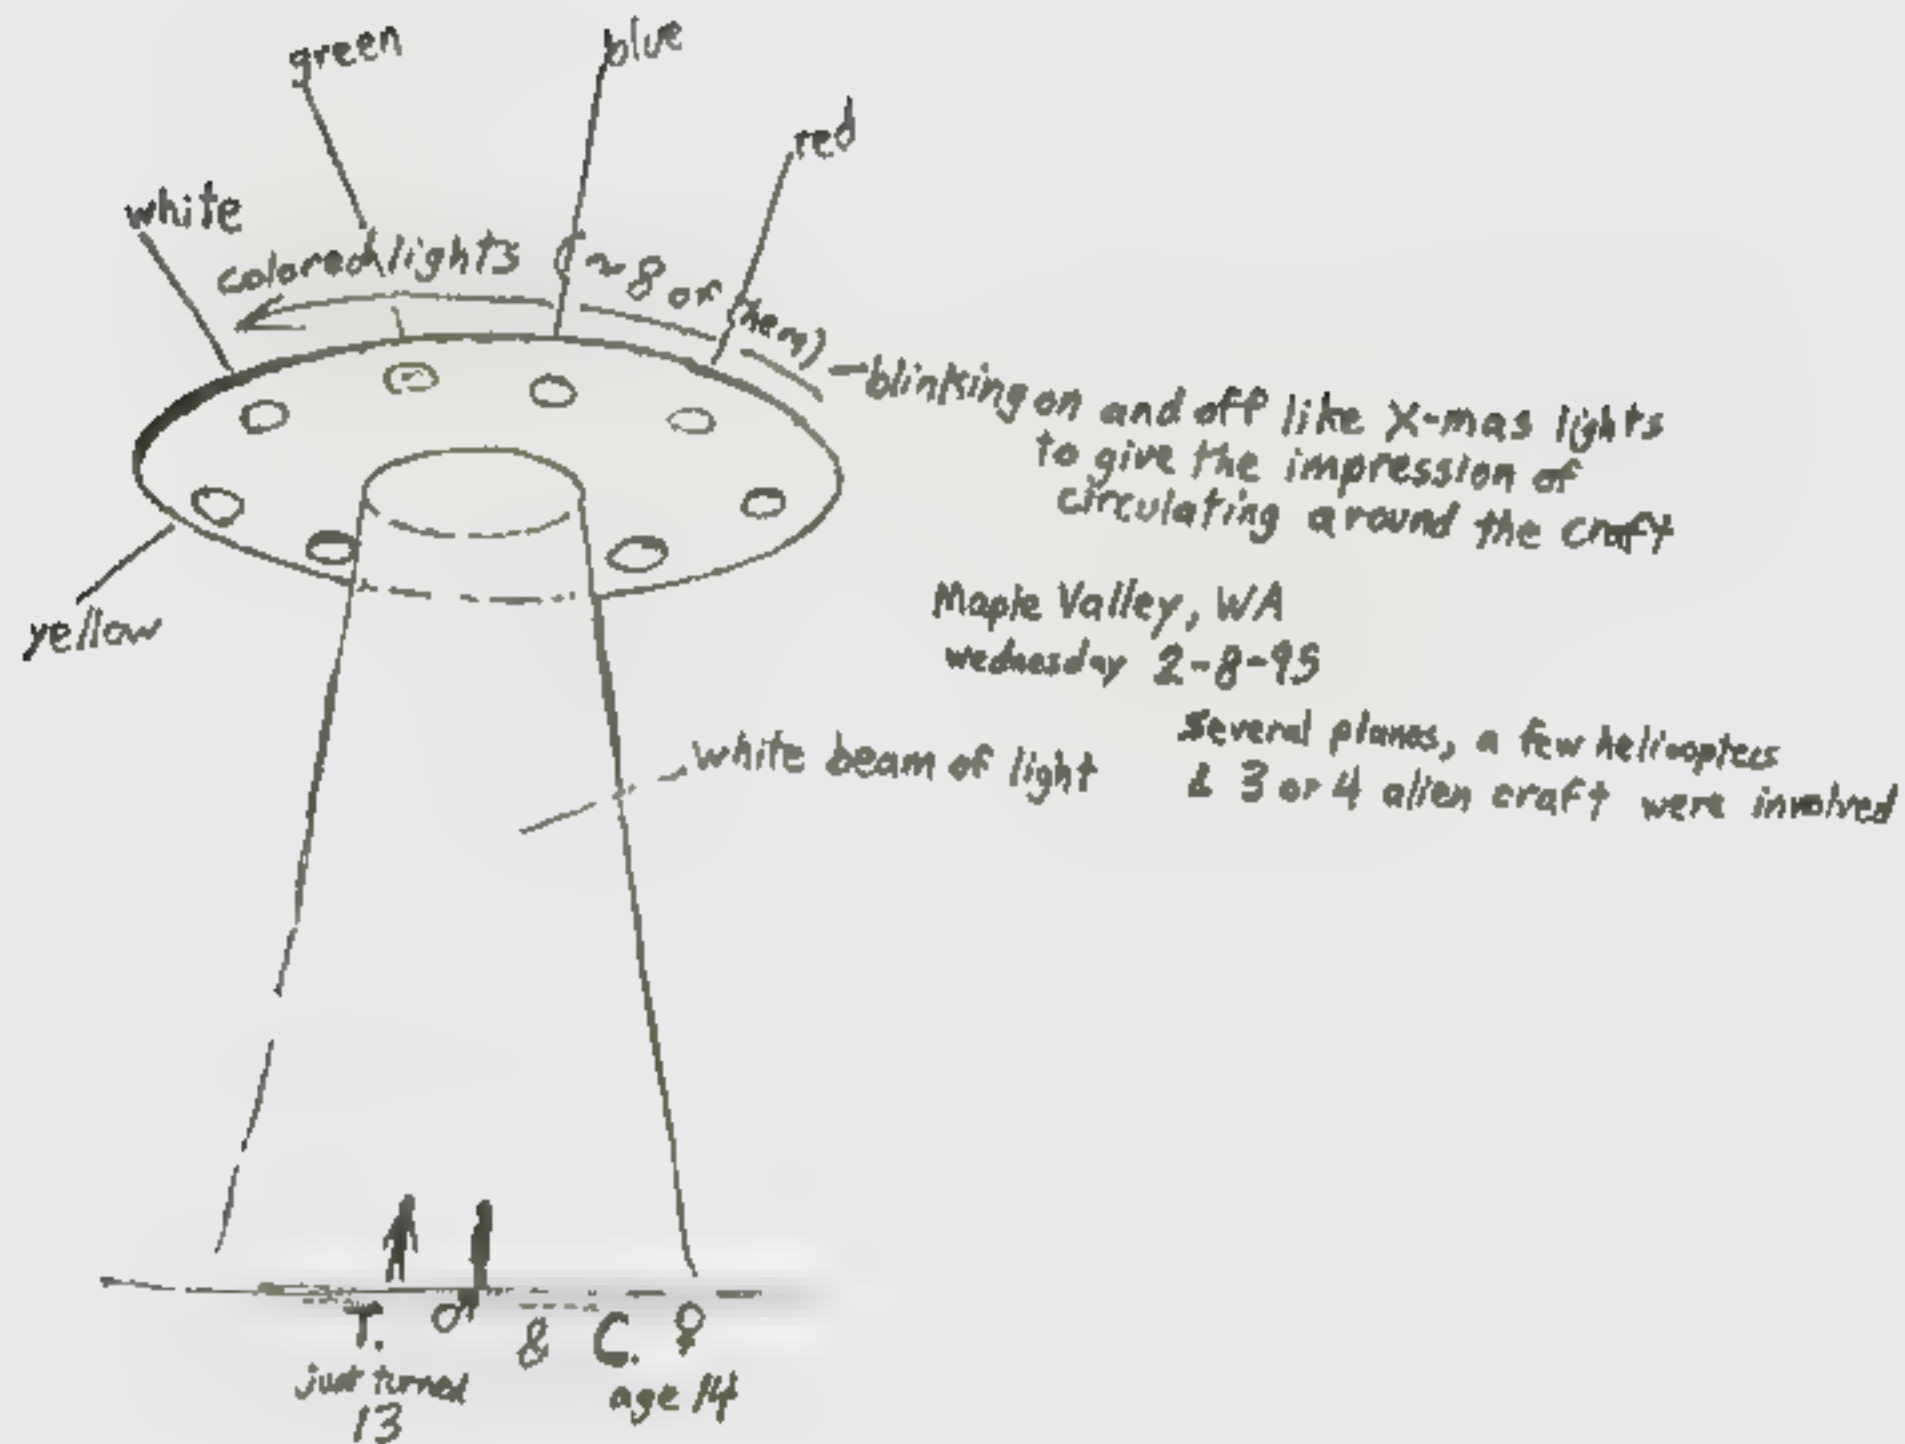 green
blue
red
white
colored lights (~8 of them) — blinking on and off like X-mas lights
to give the impression of
circulating around the craft
yellow
Maple Valley, WA
wednesday 2-8-95
Several planes, a few helicopters
& 3 or 4 alien craft were involved
white beam of light
T. ♂ & C. ♀
just turned
13
age 14